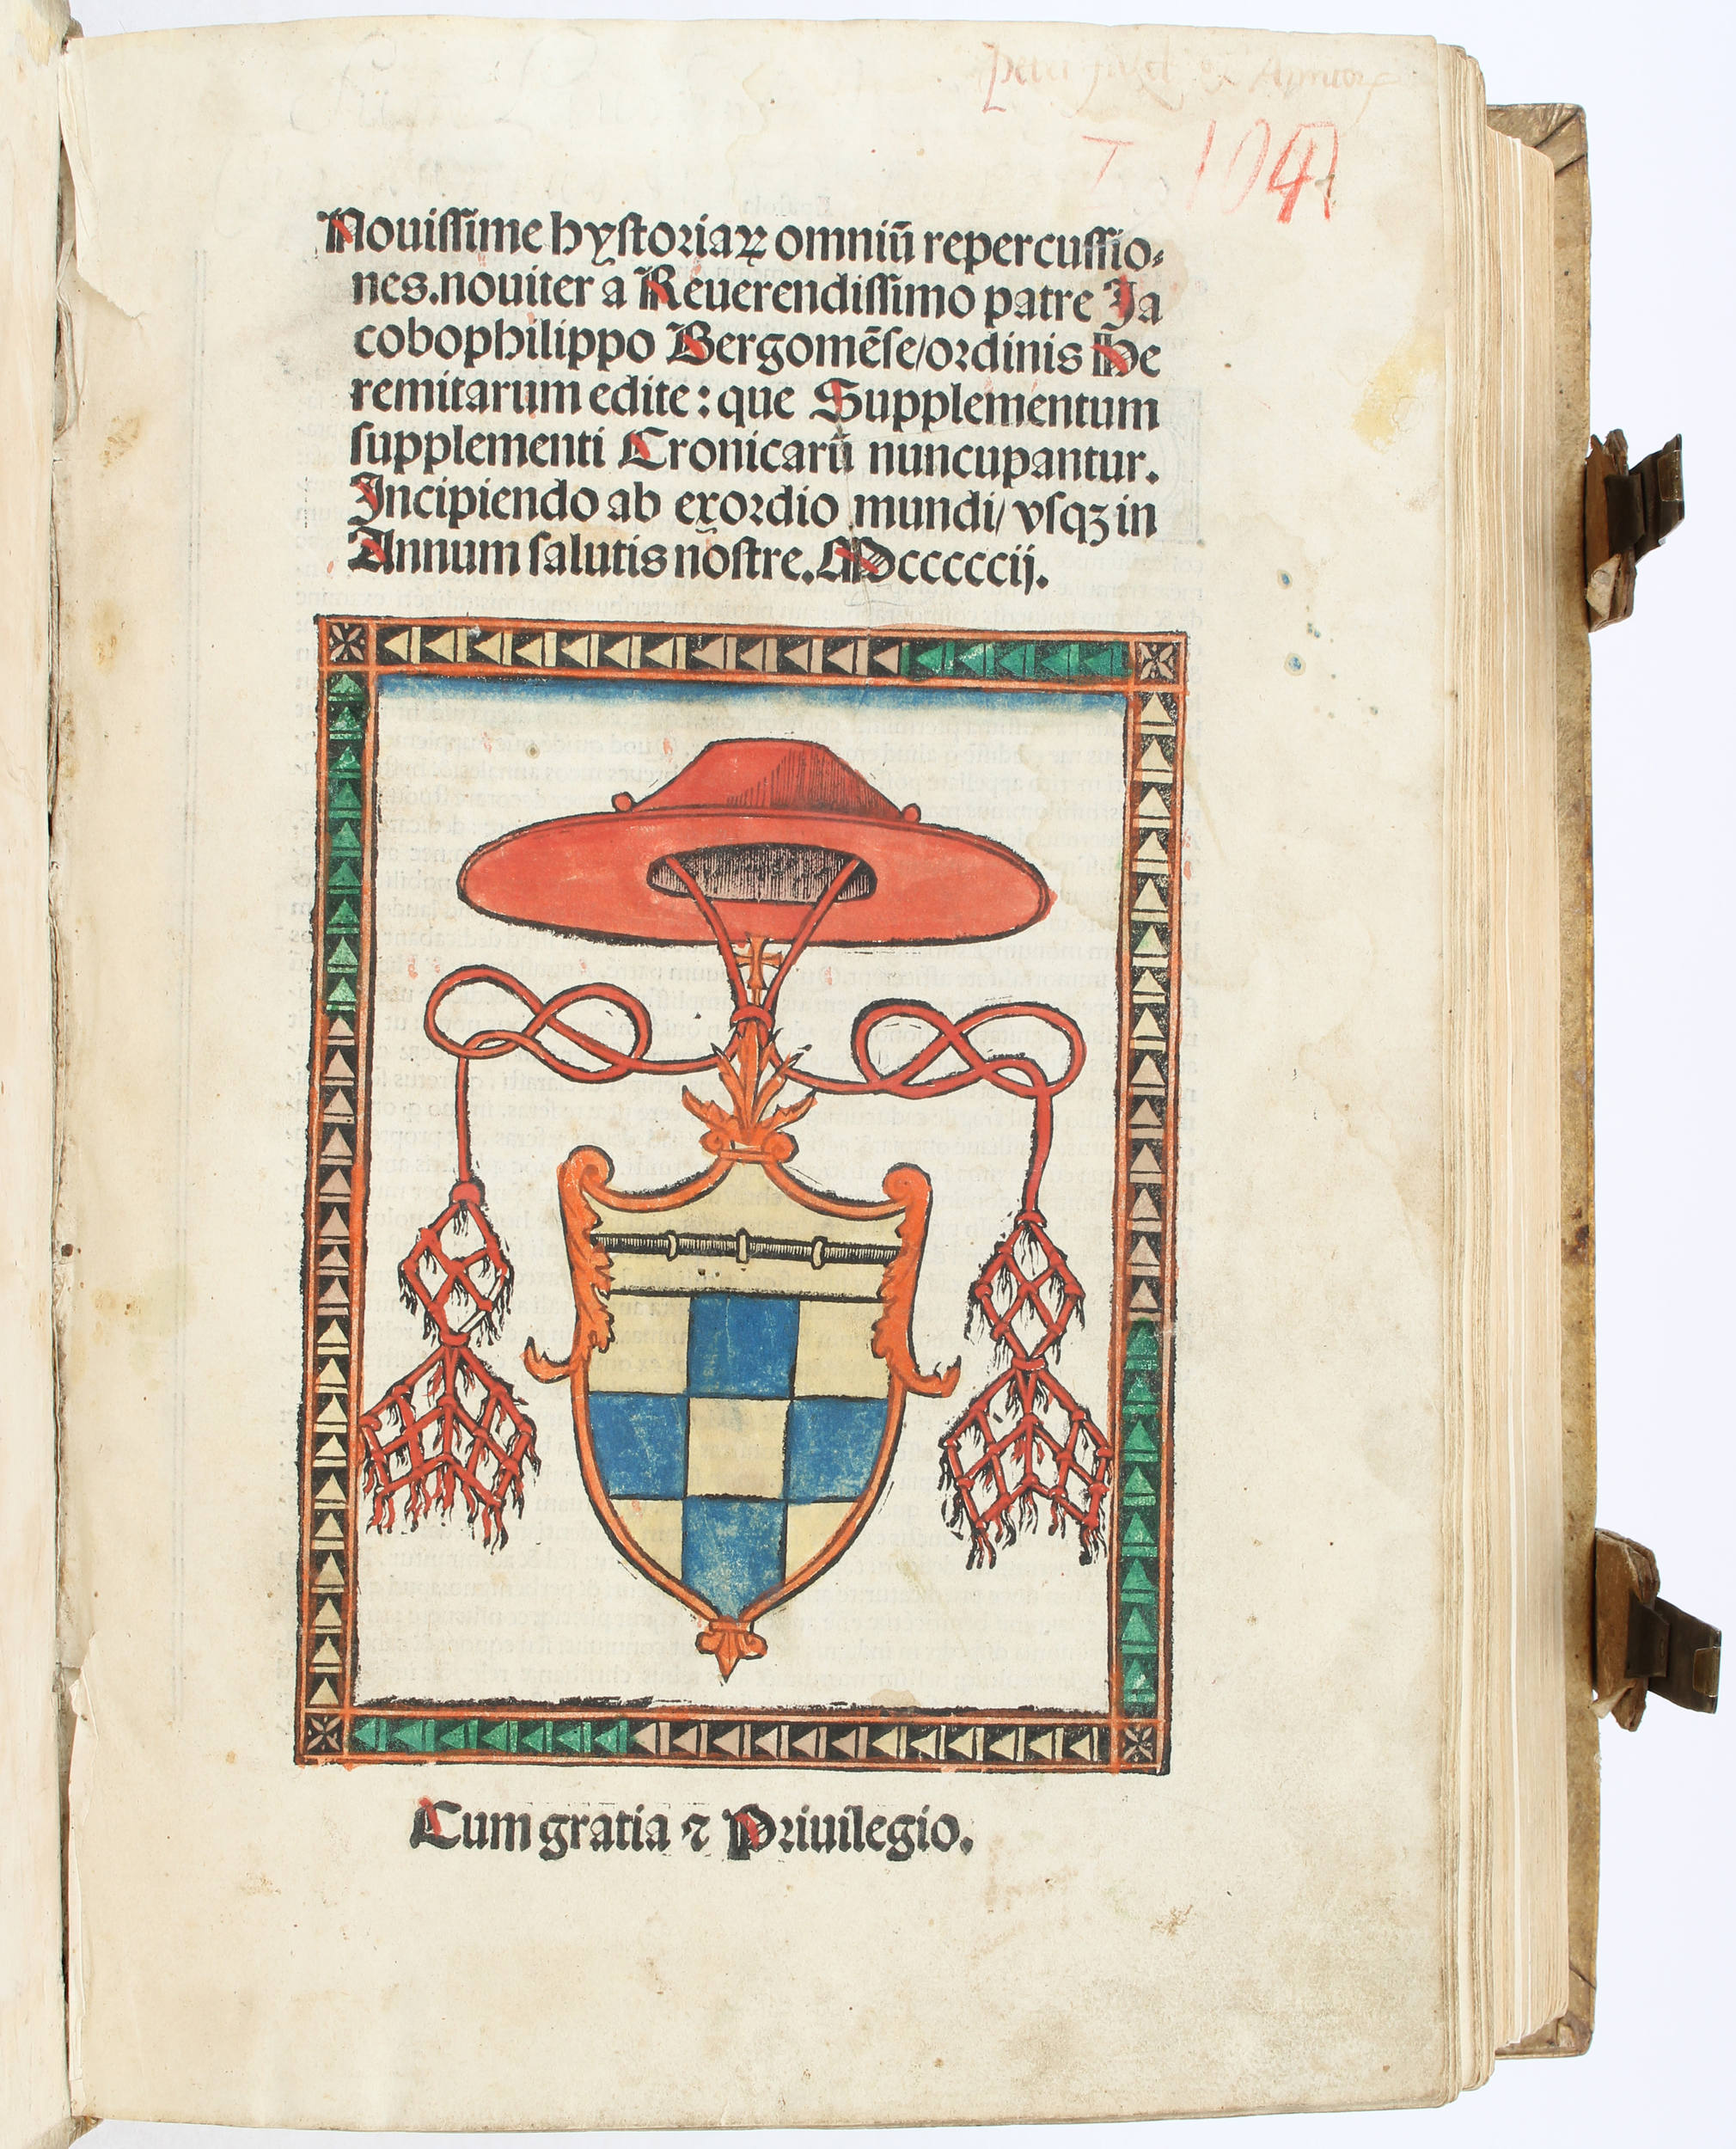 1941
Nouissime hystoriaꝝ omniū repercussio⸗
nes.nouiter a Reuerendissimo patre Ja
cobophilippo Bergomēse/ordinis He
remitarum edite: que Supplementum
supplementi Cronicarū nuncupantur.
Incipiendo ab exordio mundi/ vsqꝫ in
Annum salutis nostre. Mcccccij.
Cum gratia ⁊ Priuilegio.